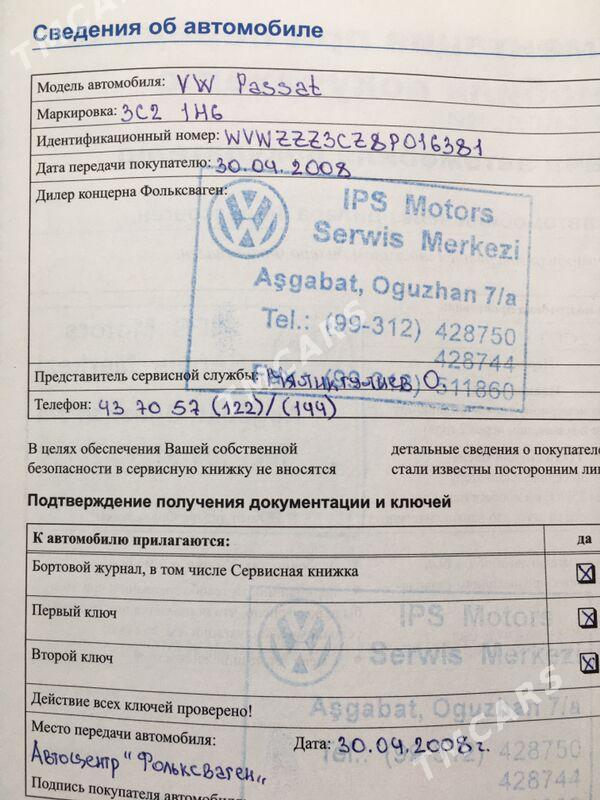 Сведения об автомобиле
Модель автомобиля: VW Passat
Маркировка: 3C2 1H6
Идентификационный номер: WVWZZZ3CZ8P016381
Дата передачи покупателю: 30.04.2008
Дилер концерна Фольксваген:
IPS Motors
Serwis Merkezi
Aşgabat, Oguzhan 7/a
Tel.: (99-312) 428750
428744
511860
Представитель сервисной службы:
Телефон: 43 70 57 (122)/(144)
В целях обеспечения Вашей собственной
безопасности в сервисную книжку не вносятся
детальные сведения о покупател
стали известны посторонним ли
Подтверждение получения документации и ключей
К автомобилю прилагаются: да
Бортовой журнал, в том числе Сервисная книжка
Первый ключ
Второй ключ
Действие всех ключей проверено!
IPS Motors
Serwis Merkezi
Aşgabat, Oguzhan 7/a
Tel.: (99-312) 428750
428744
Место передачи автомобиля: Дата: 30.04.2008г.
Автоцентр "Фольксваген"
Подпись покупателя автомобил
TMCARS
TMCARS
TMCARS